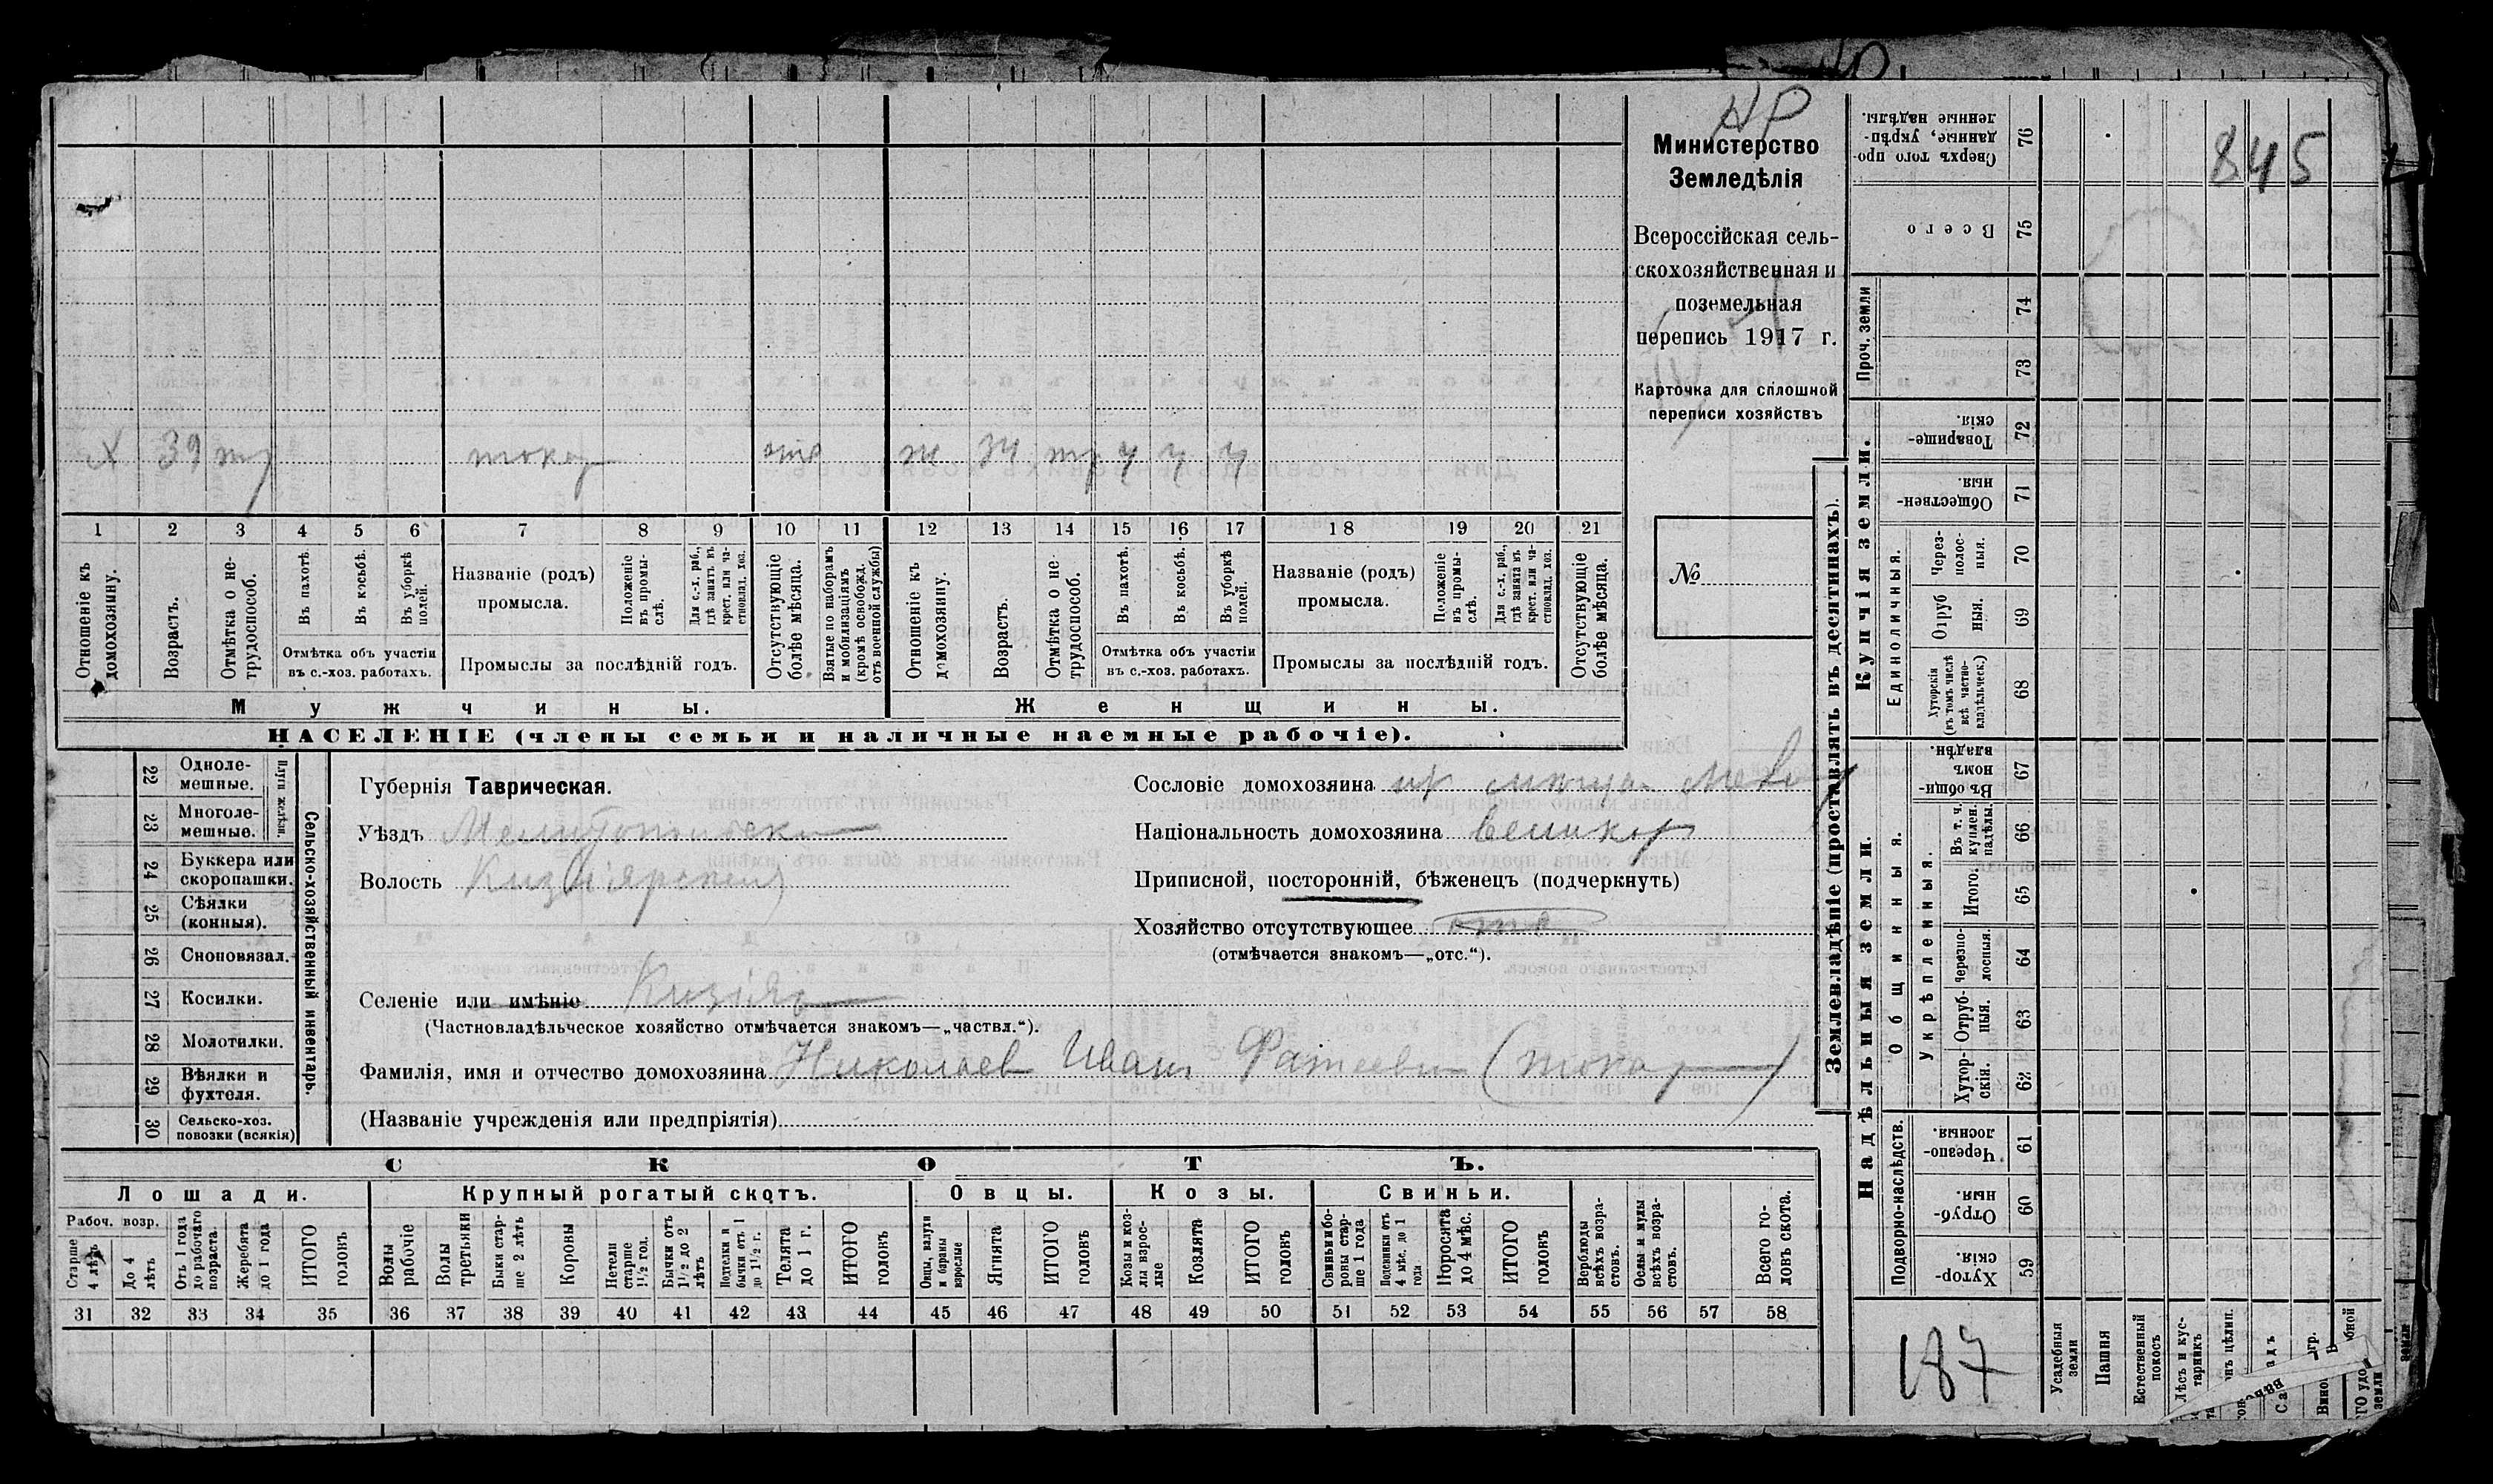 НР
Министерство
Земледѣлія
Всероссійская сель-
скохозяйственная и
поземельная
перепись 1917 г.
Карточка для сплошной
переписи хозяйствъ
№
845
х 39 тр токар отс ж 34 тр ч ч ч
1 2 3 4 5 6 7 8 9 10 11 12 13 14 15 16 17 18 19 20 21
Отношеніе къ домохозяину.
Возрастъ.
Отмѣтка о не-трудоспособ.
Въ пахотѣ.
Въ косьбѣ.
Въ уборкѣ полей.
Отмѣтка объ участіи
въ с.-хоз. работахъ.
Названіе (родъ)
промысла.
Положеніе въ промы-слѣ.
Для с.-х. раб., гдѣ занятъ въ крест. или ча-стновлад. хоз.
Промыслы за послѣдній годъ.
Отсутствующіе болѣе мѣсяца.
Взятые по наборамъ и мобилизаціямъ (кромѣ освобожд. отъ военной службы)
Отношеніе къ домохозяину.
Возрастъ.
Отмѣтка о не трудоспособ.
Въ пахотѣ.
Въ косьбѣ.
Въ уборкѣ полей.
Отмѣтка объ участіи
въ с.-хоз. работахъ.
Названіе (родъ)
промысла.
Положеніе въ промы-слѣ.
Для с.-х. раб., гдѣ занята въ крест. или ча-стновлад. хоз.
Промыслы за послѣдній годъ.
Отсутствующіе болѣе мѣсяца.
Мужчины.
Женщины.
НАСЕЛЕНІЕ (члены семьи и наличные наемные рабочіе).
Сельско-хозяйственный инвентарь.
Плуги желѣзн.
22 Одноле-мешные.
23 Многоле-мешные.
24 Буккера или скоропашки.
25 Сѣялки (конныя).
26 Сноповязал.
27 Косилки.
28 Молотилки.
29 Вѣялки и фухтеля.
30 Сельско-хоз. повозки (всякія)
Губернія Таврическая.
Уѣздъ Мелитопольск
Волость Кизіярской
Сословіе домохозяина
Національность домохозяина великор
Приписной, посторонній, бѣженецъ (подчеркнуть)
Хозяйство отсутствующее отс
(отмѣчается знакомъ—„отс.“).
Селеніе или имѣніе Кизіяр
(Частновладѣльческое хозяйство отмѣчается знакомъ—„частвл.“).
Фамилія, имя и отчество домохозяина Николаев Иван Фатеевич (токар)
(Названіе учрежденія или предпріятія)
СКОТЪ.
Лошади. Крупный рогатый скотъ. Овцы. Козы. Свиньи.
Рабоч. возр.
Старше 4 лѣтъ
До 4 лѣтъ
Отъ 1 года до рабочаго возраста.
Жеребята до 1 года
ИТОГО головъ
Волы рабочіе
Волы третьяки
Быки стар-ше 2 лѣтъ
Коровы
Нетели старше 1½ год.
Бычки отъ 1½ до 2 лѣтъ
Подтелки и бычки отъ 1 до 1½ г.
Телята до 1 г.
ИТОГО головъ
Овцы, валухи и бараны взрослые
Ягнята
ИТОГО головъ
Козы и коз-лы взрос-лые
Козлята
ИТОГО головъ
Свиньи и бо-ровы стар-ше 1 года
Подсвинки отъ 4 мѣс. до 1 года
Поросята до 4 мѣс.
ИТОГО головъ
Верблюды всѣхъ возра-стовъ.
Ослы и мулы всѣхъ возра-стовъ.
Всего го-ловъ скота.
31 32 33 34 35 36 37 38 39 40 41 42 43 44 45 46 47 48 49 50 51 52 53 54 55 56 57 58
Землевладѣніе (проставлять въ десятинахъ).
Купчія земли.
Надѣльныя земли.
Проч. земли
Единоличныя.
Общинныя.
Укрѣпленныя.
Подворно-наслѣдств.
76 Сверхъ того про-данные, укрѣп-ленные надѣлы.
75 Всего
74
73
72 Товарище-скія
71 Обществен-ныя.
70 Через-полос-ныя.
69 Отруб ныя.
68 Хуторскія (въ томъ числѣ всѣ частно-владѣльческ.)
67 Въ общи-номъ владѣн.
66 Въ т. ч. куплен. надѣлы.
65 Итого.
64 Черезпо-лосныя.
63 Отруб-ныя.
62 Хутор-скія.
61 Черезпо-лосныя.
60 Отруб-ныя.
59 Хутор-скія.
187
Усадебныя земли
Пашня
Естественный покосъ
Лѣсъ и кус-тарникъ